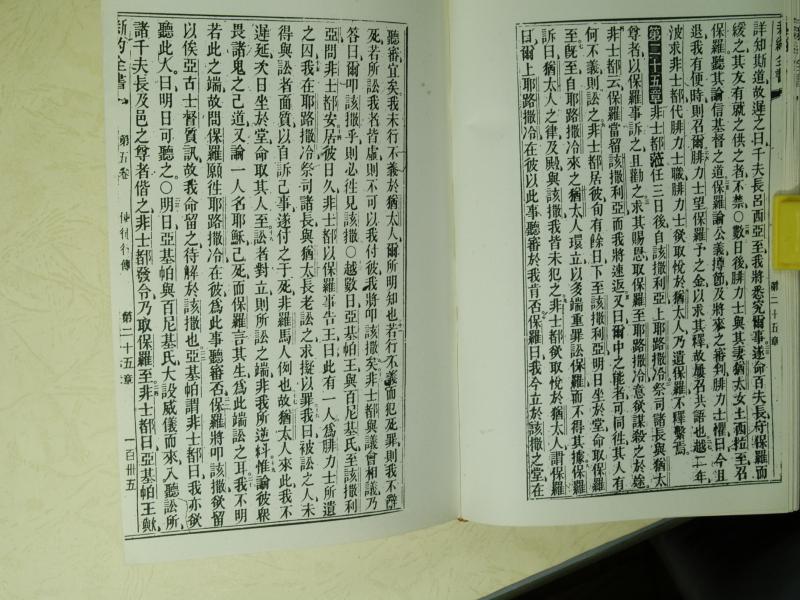 新約全書
第二十五章
詳知斯道故遲之曰千夫長呂西亞至我將悉究爾事遂命百夫長守保羅而
緩之其友有就之供之者不禁○數日後腓力士與其妻猶太女土西拉至召
保羅聽其論信基督之道保羅論公義撙節及將來之審判腓力士懼曰今且
退我有便時則召爾腓力士望保羅予之金以求其釋故屢召共語也越二年
波求非士都代腓力士職腓力士欲取悅於猶太人乃遺保羅不釋繫焉
第二十五章非士都蒞任三日後自該撒利亞上耶路撒冷祭司諸長與猶太
尊者以保羅事訴之且勸之求其賜恩取保羅至耶路撒冷意欲謀殺之於途
非士都云保羅當留該撒利亞而我將速返又曰爾中之能者可同往其人有
何不義則訟之非士都居彼旬有餘日下至該撒利亞明日坐於堂命取保羅
至旣至自耶路撒冷來之猶太人環立以多端重罪訟保羅而不得其據保羅
訴曰猶太人之律及殿與該撒我皆未犯之非士都欲取悅於猶太人謂保羅
曰爾上耶路撒冷在彼以此事聽審於我肯否保羅曰我今立於該撒之堂在
聽審宜矣我未行不義於猶太人爾所明知也若行不義而犯死罪則我不辭
死若所訟我者皆虛則不可以我付彼我將叩該撒矣非士都與議會相議乃
答曰爾叩該撒乎則必徃見該撒○越數日亞基帕王與百尼基氏至該撒利
亞問非士都安居彼日久非士都以保羅事告王曰此有一人爲腓力士所遺
之囚我在耶路撒冷祭司諸長與猶太長老訟之求擬以罪我曰被訟之人未
得與訟者面質以自訴己事遂付之于死非羅馬人例也故猶太人來此我不
遲延次日坐於堂命取其人至訟者對立則所訟之端非我所逆料惟論彼衆
畏諸鬼之己道又論一人名耶穌己死而保羅言其生爲此端訟之耳我不明
若此之端故問保羅願徃耶路撒冷在彼爲此事聽審否保羅將叩該撒欲留
以俟亞古士督質訊故我命留之待解於該撒也亞基帕謂非士都曰我亦欲
聽此人曰明日可聽之○明日亞基帕與百尼基氏大設威儀而來入聽訟所
諸千夫長及邑之尊者偕之非士都發令乃取保羅至非士都曰亞基帕王歟
新約全書
第五卷
使徒行傳
第二十五章
一百卅五